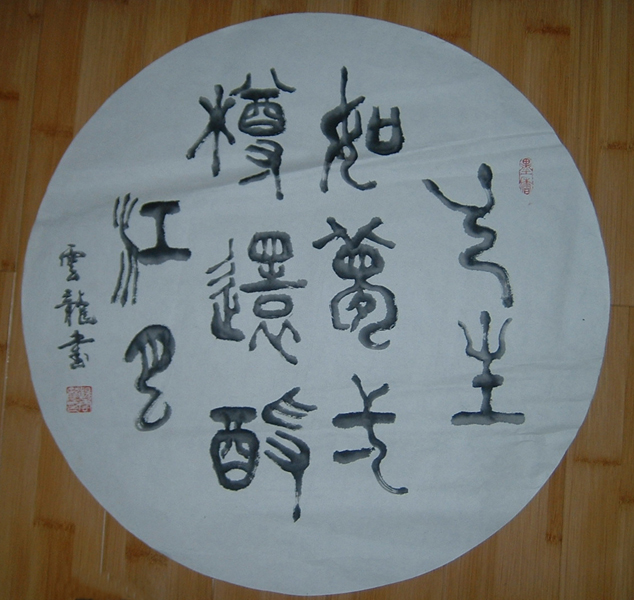 人生
如夢一
樽還酹
江月
雲龍書